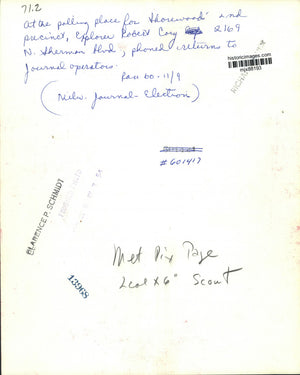 71.2
At the polling place for Shorewood's 2nd
precinct, Explorer Robert Cary 2169
N. Sherman Blvd, phoned returns to
Journal operators.
11/9
(Milw. Journal - Election)
historicimages.com
mjx88193
#601417
CLARENCE P. SCHMIDT
13968
Met Pix Page
2 col x 6" Scout